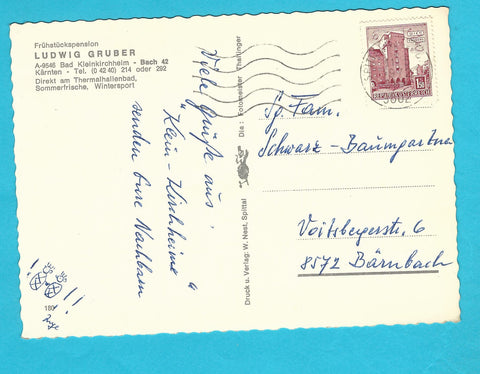 Frühstückspension
LUDWIG GRUBER
A-9546 Bad Kleinkirchheim - Bach 42
Kärnten - Tel. (0 42 40) 214 oder 292
Direkt am Thermalhallenbad,
Sommerfrische, Wintersport
Viele Grüße aus
"Klein-Kirchheim"
senden Eure Nachbarn
Die: Fotomeister Tharlinger
Druck u. Verlag: W. Nest, Spittal
Fam.
Schwarz-Baumgartner
Voitsbergerstr. 6
8572 Bärnbach